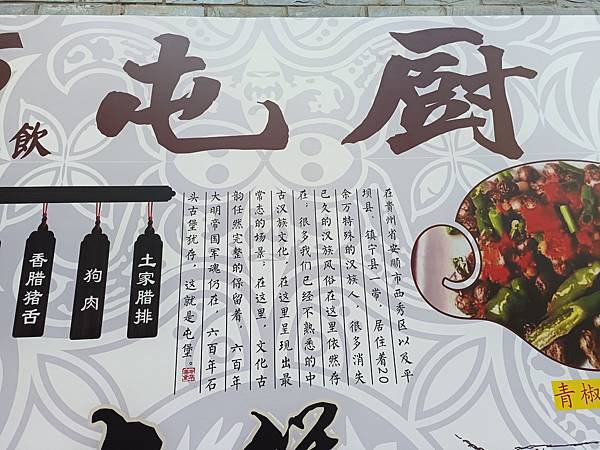 屯厨
飲
在貴州省安顺市西秀区以及平
坝县、镇宁县一带，居住着20
余万特殊的汉族人，很多消失
已久的汉族风俗在这里依然存
在，很多我们已经不熟悉的中
古汉族文化，在这里呈现出最
常态的场景；在这里，文化古
韵任然完整的保留着，六百年
大明帝国军魂仍在，六百年石
头古堡犹存，这就是屯堡。
土家腊排
狗肉
香腊猪舌
青椒